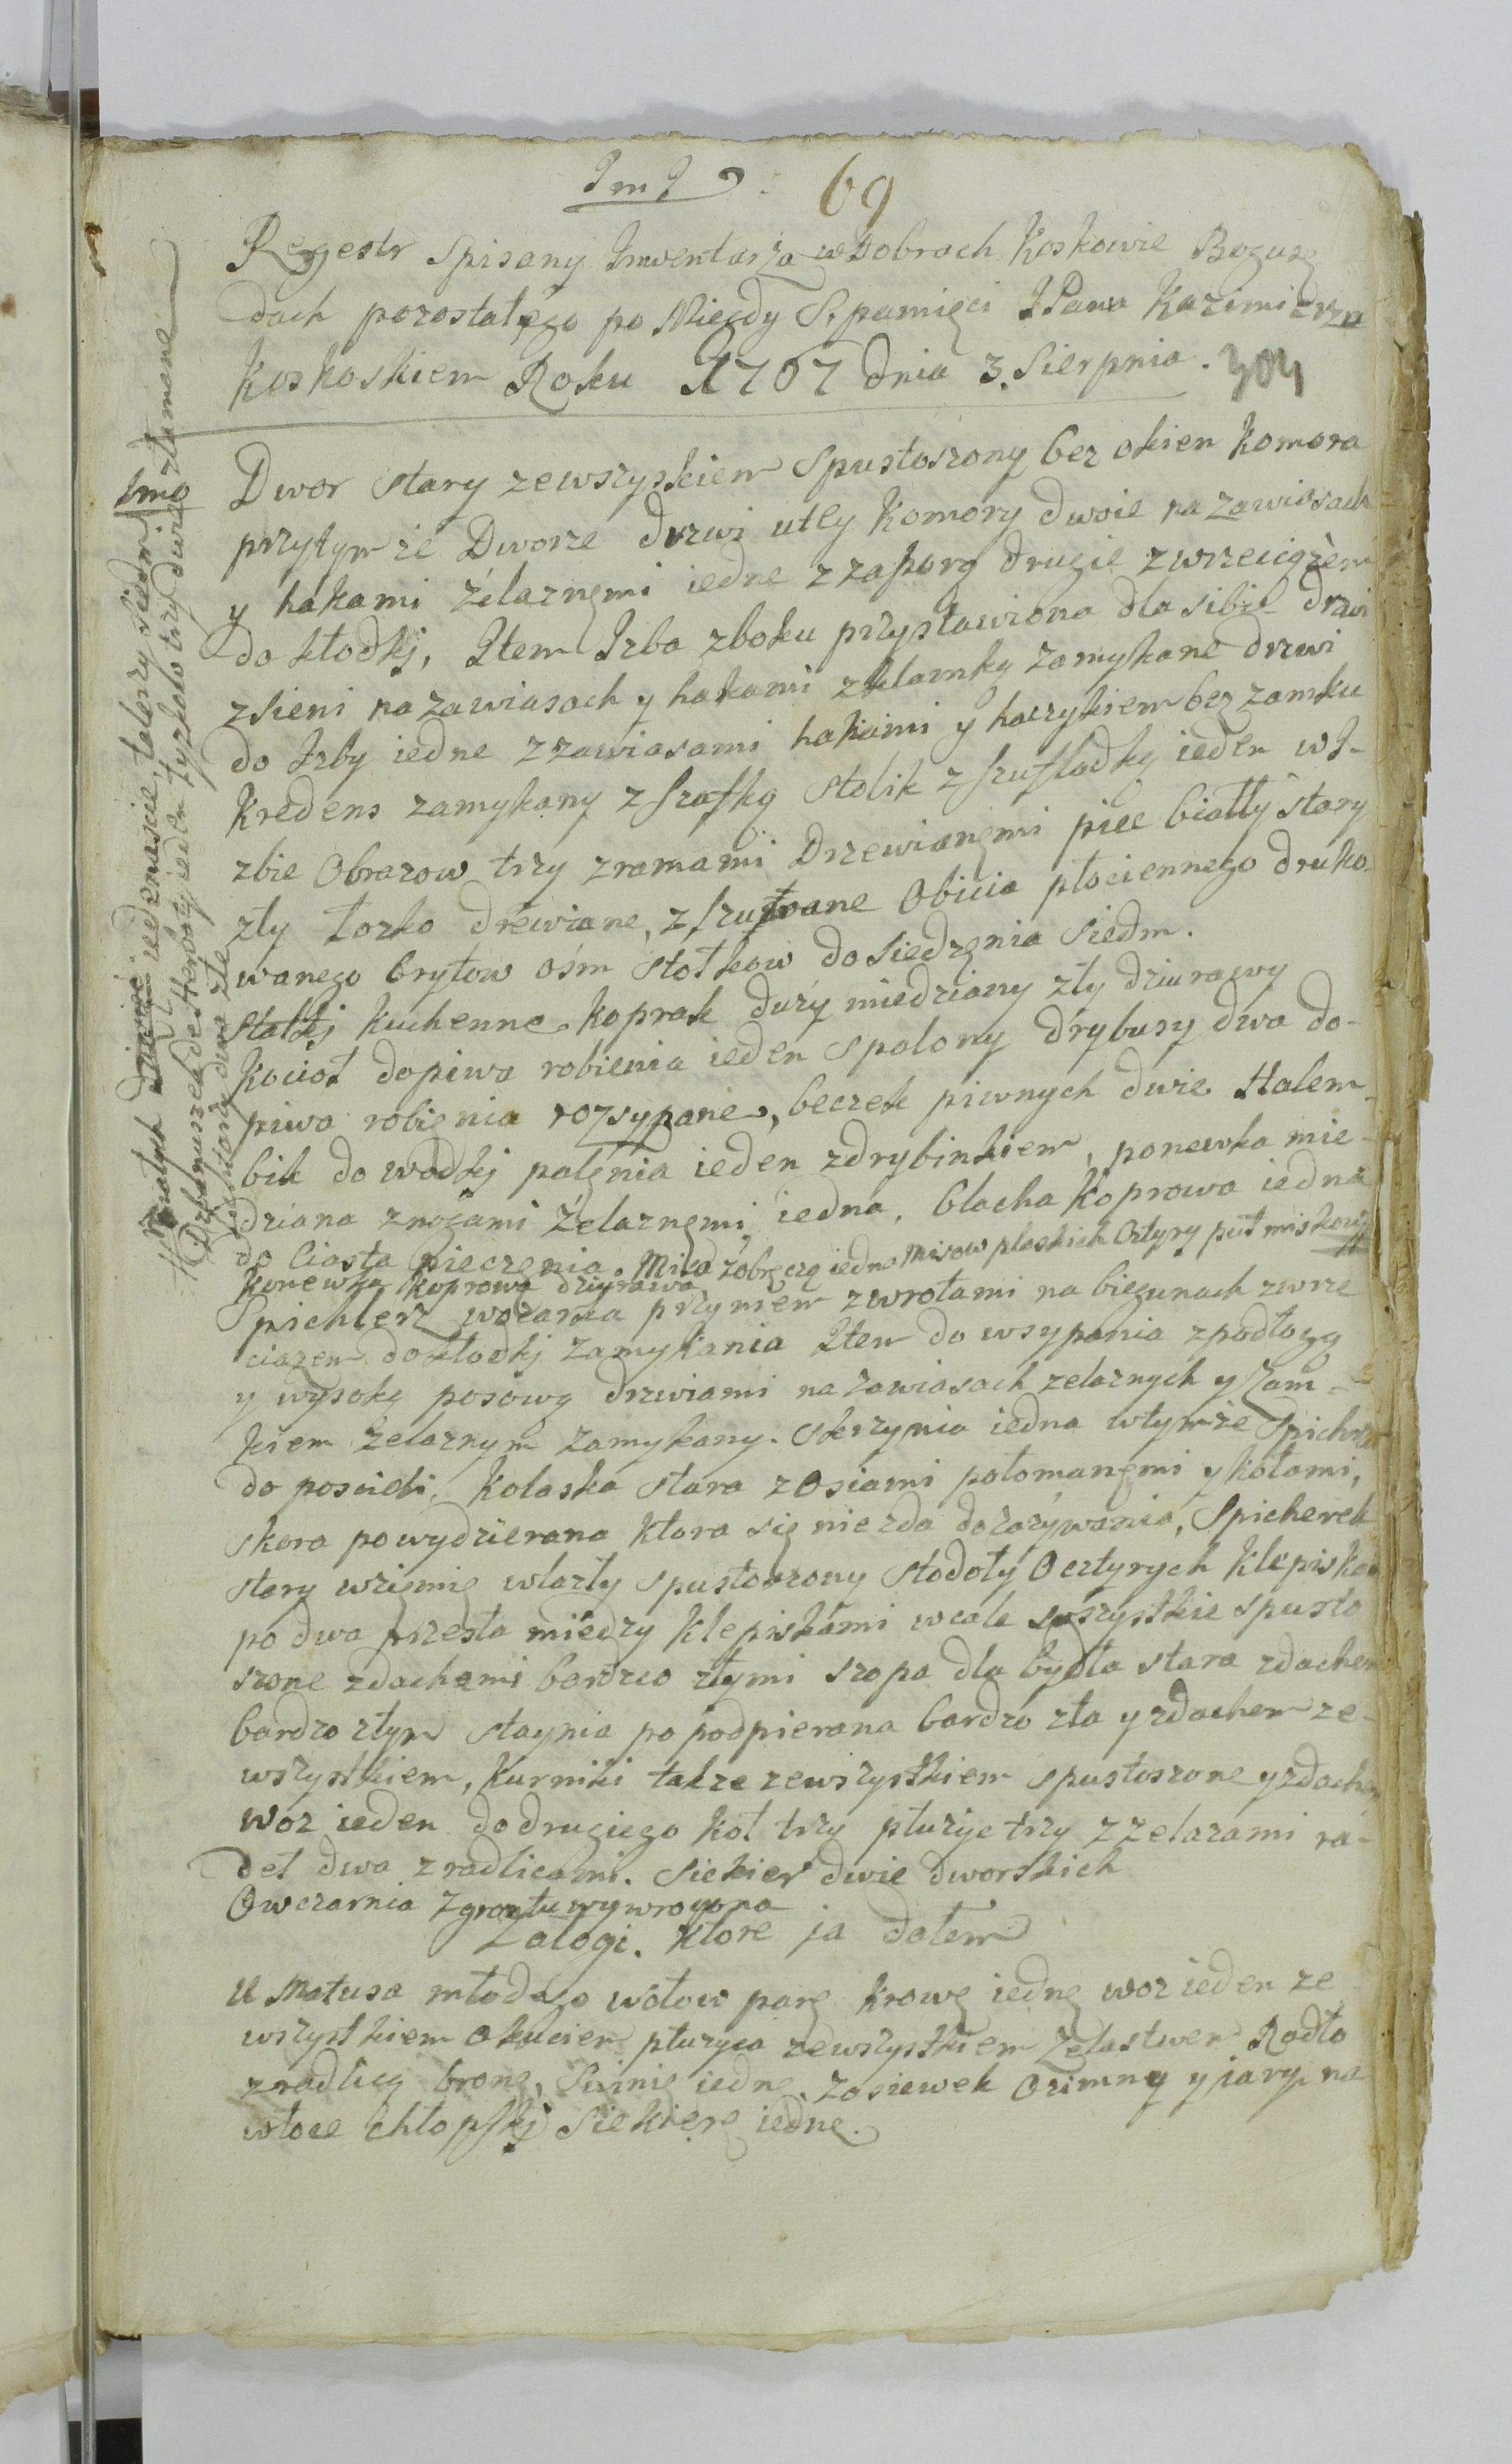 JmJ
69
Regestr Spisany Inwentarza w Dobrach Koskowie Boguszę
dach pozostałęgo po Niegdy S. pamięci JPana Kazimierza
Koskoskiem Roku 1767 dnia 3. Sierpnia.
304
Imo Dwor stary zewszyskiem Spustoszony bez okien Komora
przytym że Dworze drzwi utey Komory dwoie na zawiasach
y hakami żelaznęmi iedne z zaporą drugie zwrzeciążem
do kłodkj, Item Izba zboku przystawiona dla siebie drzwi
zsieni na zawiasach y hakami zklamką zamykane drzwi
do Izby iedne z zawiasami hakami y haczykiem bez zamku
Kredens zamykany z szafką stolik z szufladką ieden w I-
zbie Obrazow trzy zramami Drzewianęmi piec białły stary
zły Łozko drewiane, Obicia płociennego druko
wanego brytow ośm stołkow do siedzęnia siedm.
Statkj kuchenne. koprak duży miedziany zły dziurawy
Kocioł dopiwa robienia ieden spalony drybusy dwa do-
piwa robięnia rozsypane, beczek piwnych dwie Halem
bik do wodkj palęnia ieden zdrybinkiem, ponewka mie-
dziana znogami żelaznęmi iedna, blacha koprowa iedna
do Ciasta pieczęnia. Misa zobręczą iedna Misow plaskich Cztyry puł miskow
Konewka koprowa dziurawa
Spichlerz wozarnia przyniem zwrotami na biegunach zwrze
ciązem do kłodkj zamykania Item do wsypania zpodłogą
y wysoką posową drzwiami na zawiasach zelaznych y Zam-
kiem żelaznym zamykany. Skrzynia iedna wtymże Spichrzu
do poscieli. Kolaska stara z Osiami połomanęmi y kołami,
skora powydzierana ktora się niezda dozażywania, Spicherek
stary wziemię wlazły spustoszony stodoły O cztyrych klepiskach
po dwa przesła między klepiskami wcale wszystkie spusto
szone zdachami bardzo złymi szopa dla bydła stara zdachem
bardzo złym staynia po podpierana bardzo zła y zdachem ze-
wszystkiem, Kurniki takze zewszystkiem spustoszone y zdachem
Woz ieden do drugiego koł trzy płuzyc trzy z zelazami ra-
deł dwa zradlicami. Siekier dwie dworskich
Owczarnia zgrontu wywrocona
Załogi. ktore ja dałem
U Matusa młodego wołow parę krowę iednę woz ieden ze
wszystkiem okuciem płuzyca zewszystkiem zelastwem Radło
zradlicą bronę, Swinię iednę. zasiewek Ozimny y jary na
włoce chłopskj Siekierę iednę.
małych iedenascie, talerzy siedm
Dzbanuszek de Herbaty ieden łyzkow trzy dwie złamane
stary dwa złe